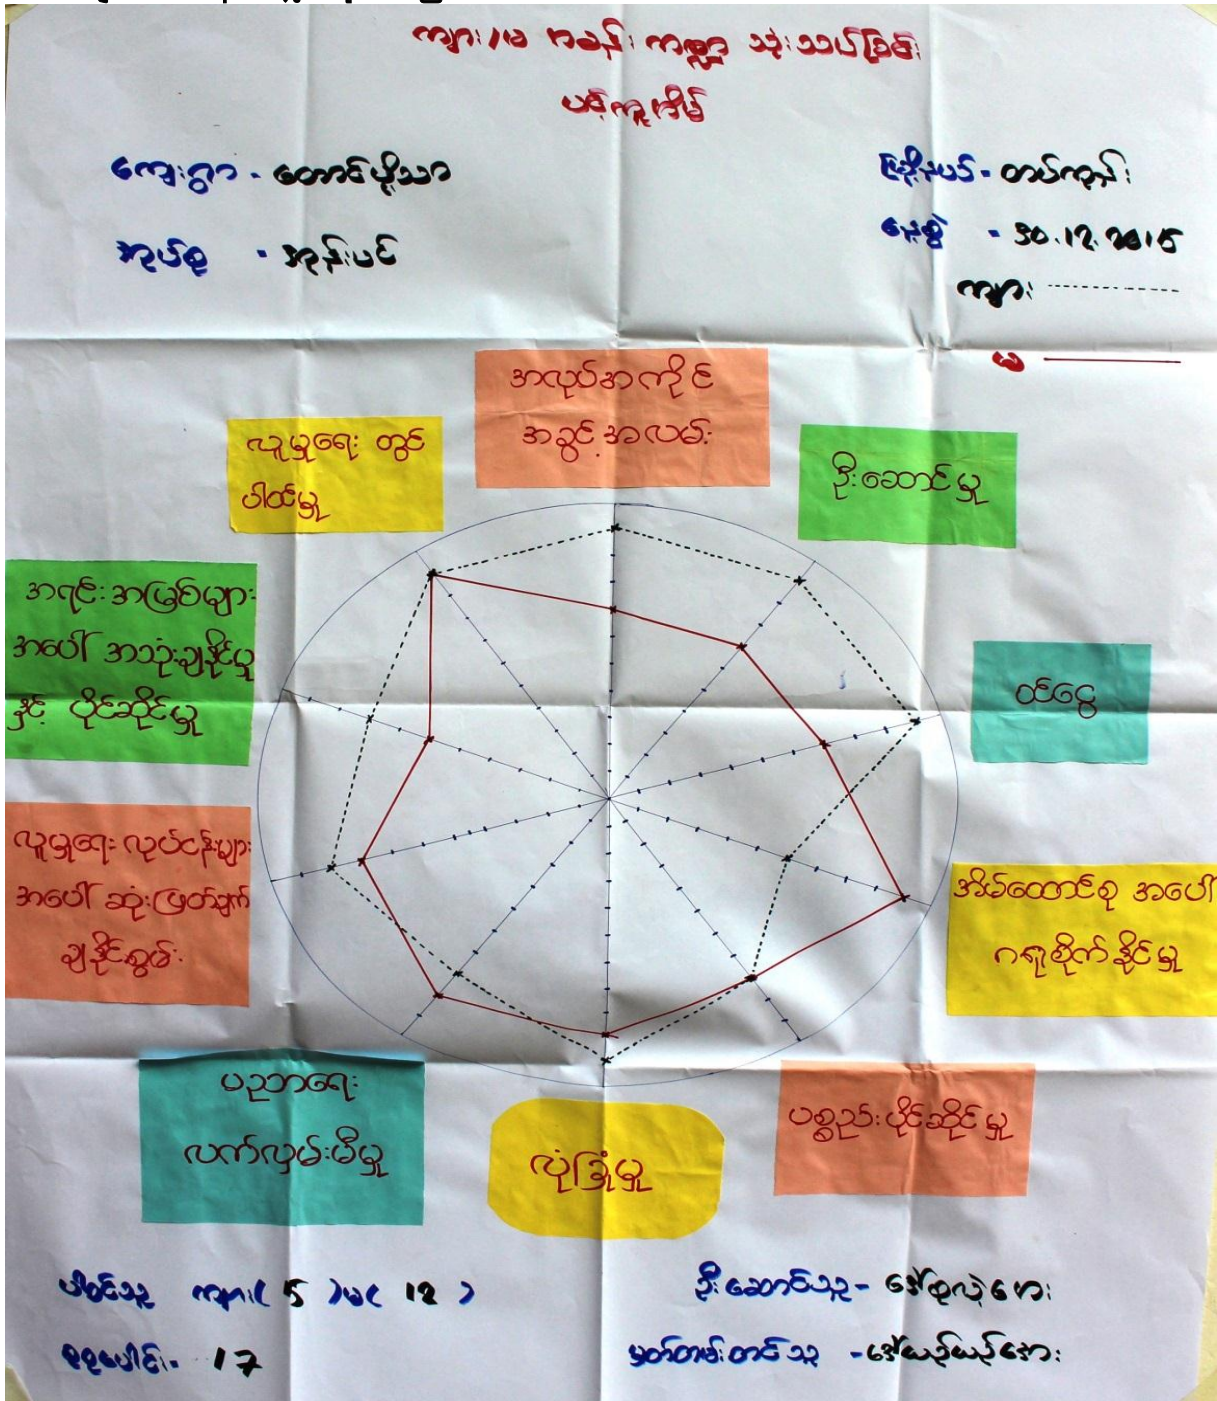 ကျား/မ အခန်း ကဏ္ဍ သုံးသပ်ခြင်း
ပင့်ကူအိမ်
ကျေးရွာ - တောင်ပို့သာ
မြို့နယ် - တပ်ကုန်း
အုပ်စု - အုန်းပင်
နေ့စွဲ - 30.12.2015
ကျား
မ
အလုပ်အကိုင်
အခွင့်အလမ်း
လူမှုရေး တွင်
ပါဝင်မှု
ဦးဆောင်မှု
အရင်းအမြစ်များ
အပေါ် အသုံးချနိုင်မှု
နှင့် ပိုင်ဆိုင်မှု
ဝင်ငွေ
လူမှုရေး လုပ်ငန်းများ
အပေါ် ဆုံးဖြတ်ချက်
ချနိုင်စွမ်း
အိမ်ထောင်စု အပေါ်
ဂရုစိုက်နိုင်မှု
ပညာရေး
လက်လှမ်းမီမှု
လုံခြုံမှု
ပစ္စည်းပိုင်ဆိုင်မှု
ပါဝင်သူ ကျား( 5 )မ( 12 )
စုစုပေါင်း- 17
ဦးဆောင်သူ-
မှတ်တမ်းတင်သူ -